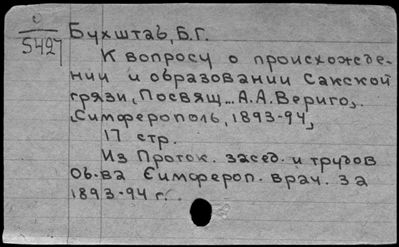 с
5427
Бухштав, Б.Г.
К вопросу о происхожде-
нии и образовании Сакской
грязи, Посвящ... А.А. Вериго,.
Симферополь, 1893-94,
17 стр.
Из Проток. засед. и трудов
Об-ва Симфероп. врач. за
1893-94 г.